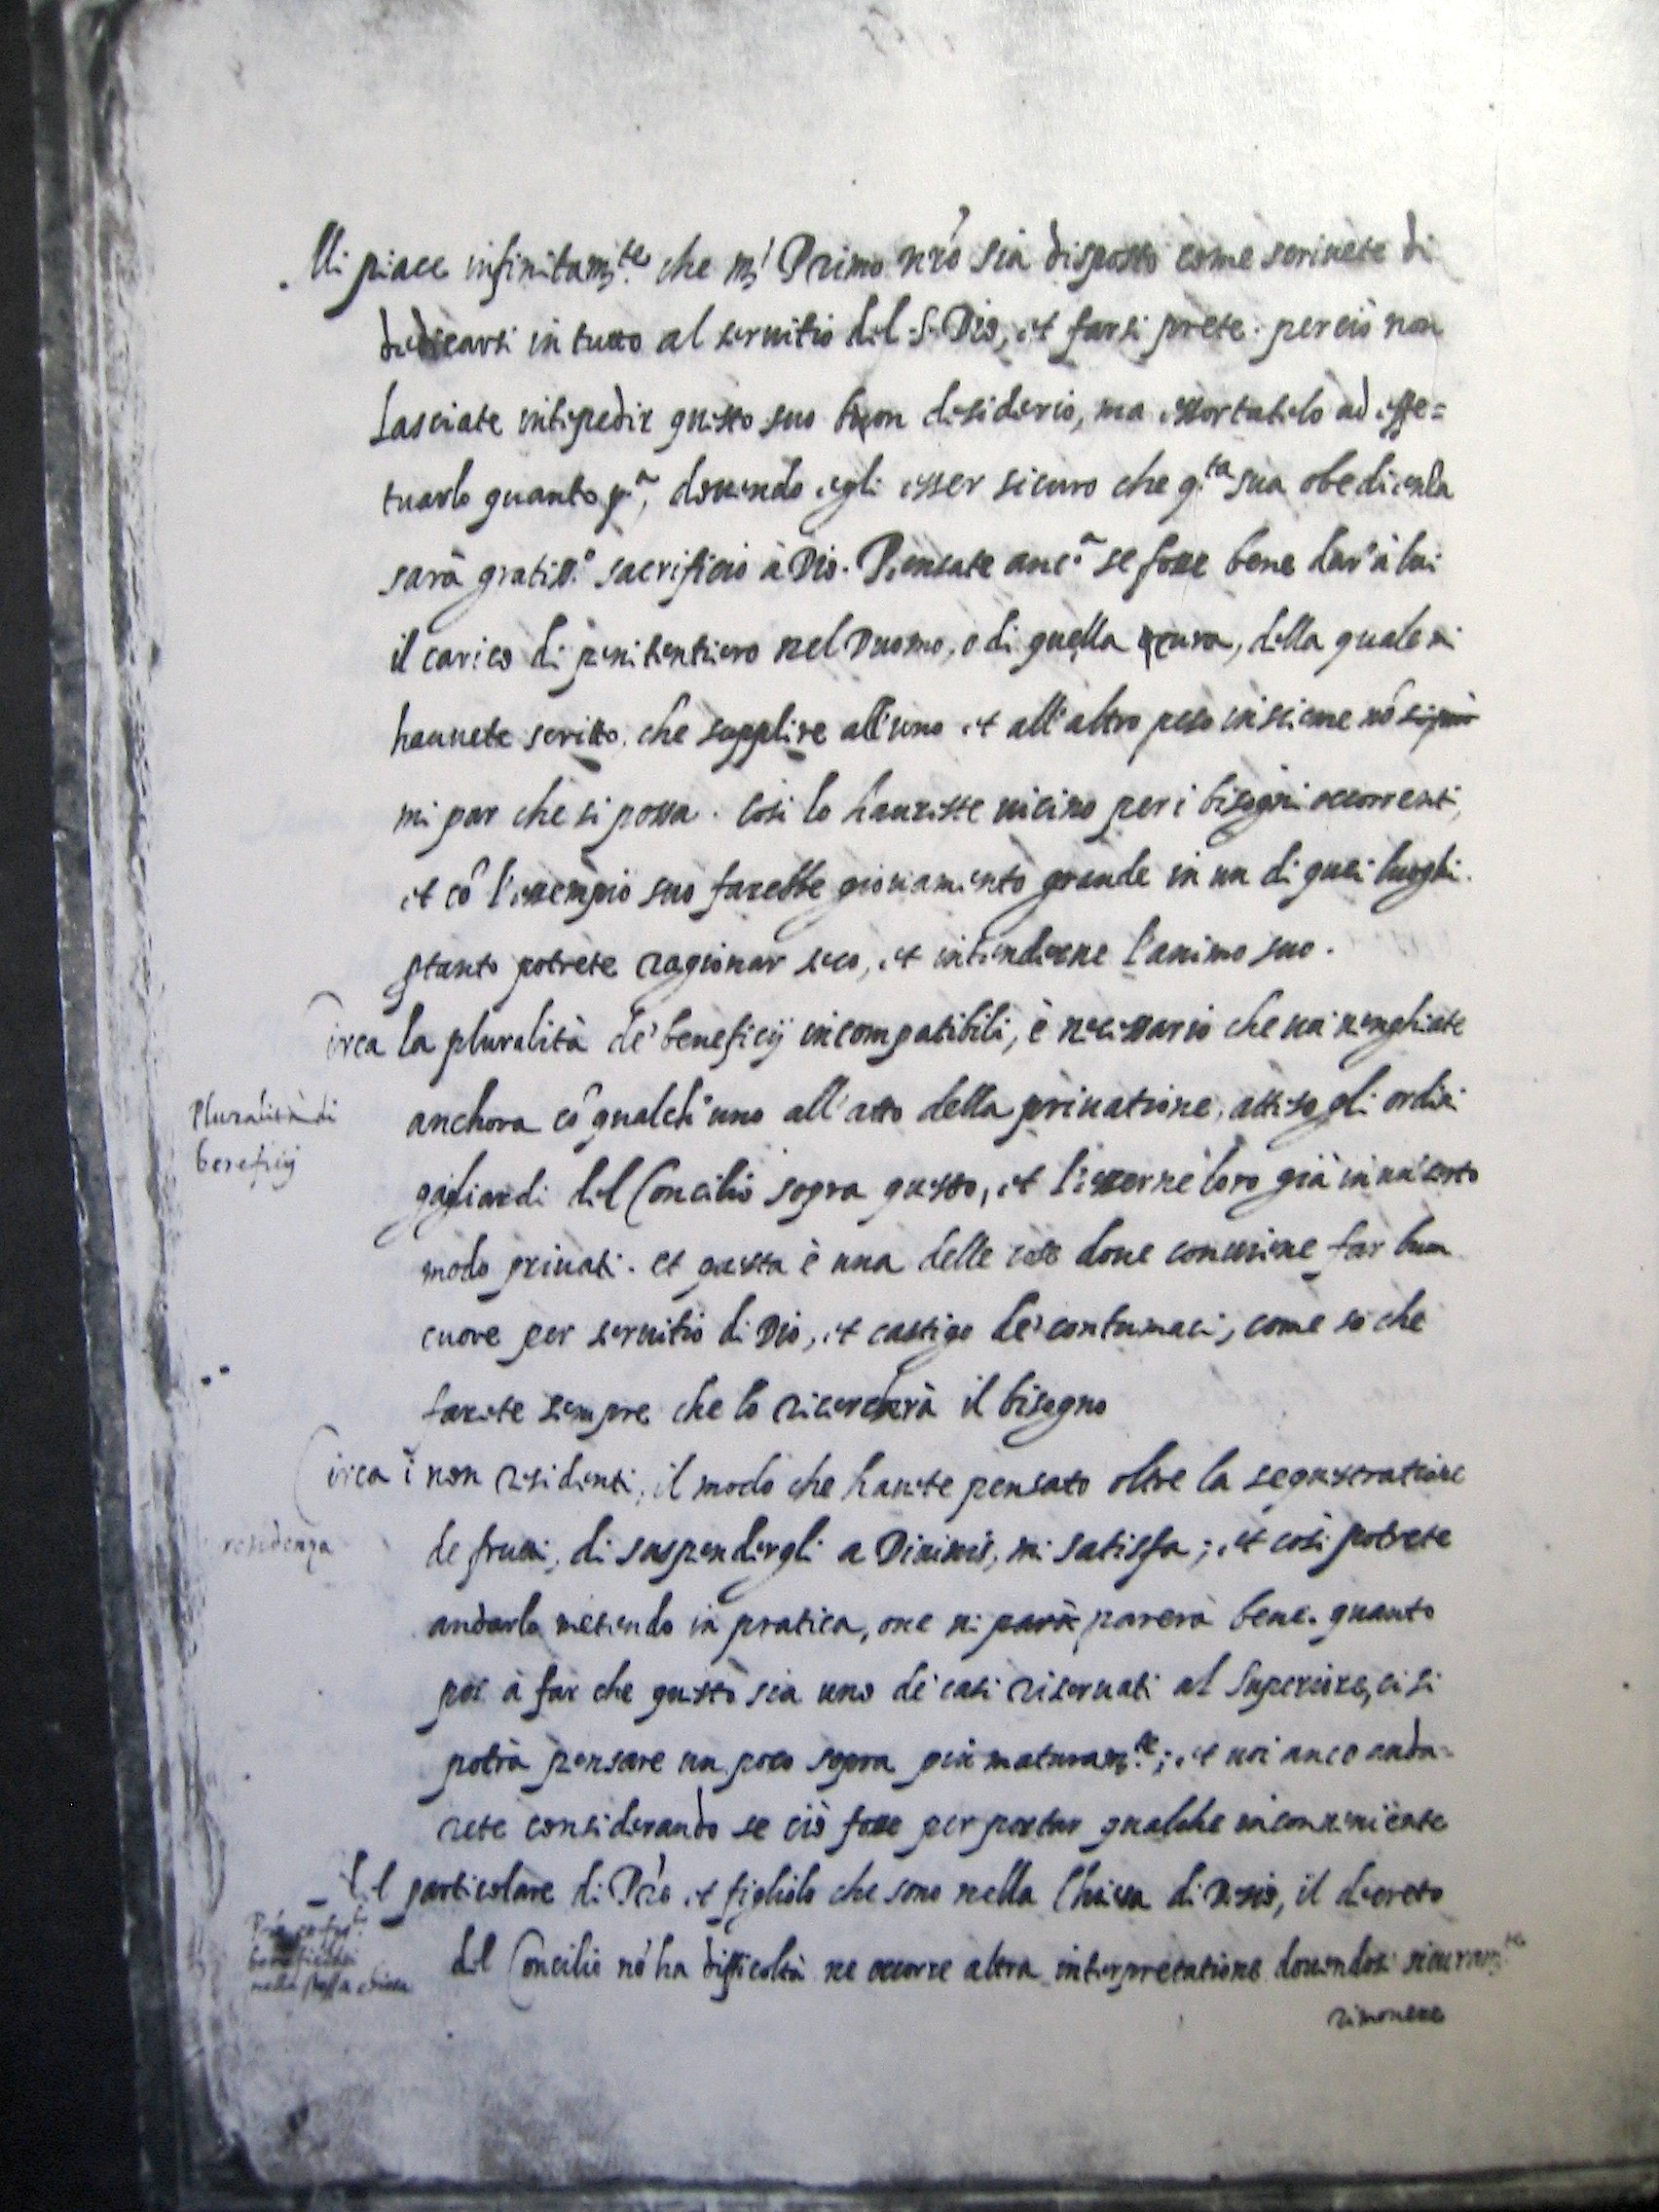 Mi piace infinitam.te che m.r Primo nr̃o sia disposto come scriuete di
dedicarsi in tutto al seruitio del S. Dio, et farsi prete. perciò non
Lasciate intepedir questo suo buon desiderio, ma essortatelo ad effe=
tuarlo quanto p.a, douendo egli esser sicuro che q.ta sua obedienza
sarà gratiss.o sacrificio à Dio. Pensate anc.a se fosse bene dar' à lui
il carico di penitentiero nel Duomo, o di quella cura, della quale mi
hauuete scritto. che supplire all'uno et all'altro peso insieme nō si può
mi par che si possa. Così lo haureste uicino per i bisogni occorrenti,
et cō l'essempio suo farebbe giouamento grande in un di quei luoghi.
ptanto potrete ragionar seco, et intenderne l'animo suo.
Circa la pluralità de' beneficij incompatibili, è necessario che uoi uenghiate
Pluralità di
beneficij
anchora cō qualch'uno all'atto della priuatione, atteso gli ordini
gagliardi del Concilio sopra questo, et l'esserne loro già in un certo
modo priuati. et questa è una delle cose doue conuiene far buon
cuore per seruitio di Dio, et castigo de' contumaci, come so che
farete sempre che lo ricercherà il bisogno
Circa i non residenti, il modo che hauete pensato oltre la sequestratione
residenza
de frutti, di suspendergli a Diuinis, mi satisfa; et così potrete
andarlo metendo in pratica, oue ui parà parerà bene. quanto
poi à far che questo sia uno de' casi riseruati al Superiore, ci si
potrà pensare un poco sopra più maturam.te; et uoi anco anda=
rete considerando se ciò fosse per portar qualche inconueniente
Del particolare di Pr̃e et figliolo che sono nella Chiesa di Desio, il decreto
Pr̃e et fig.lo
beneficiati
nella stessa chiesa
del Concilio nō ha difficoltà ne occorre altra interpretatione douendosi sicuram.te
rimouere